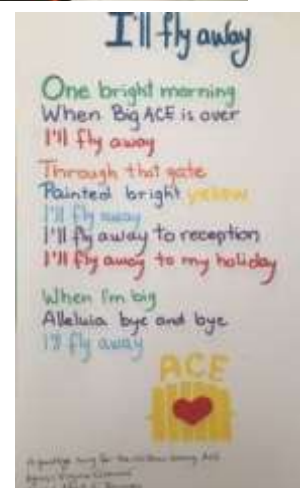 I'll fly away
One bright morning
When Big ACE is over
I'll fly away
Through that gate
Painted bright yellow
I'll fly away
I'll fly away to reception
I'll fly away to my holiday
When I'm big
Alleluia bye and bye
I'll fly away
ACE